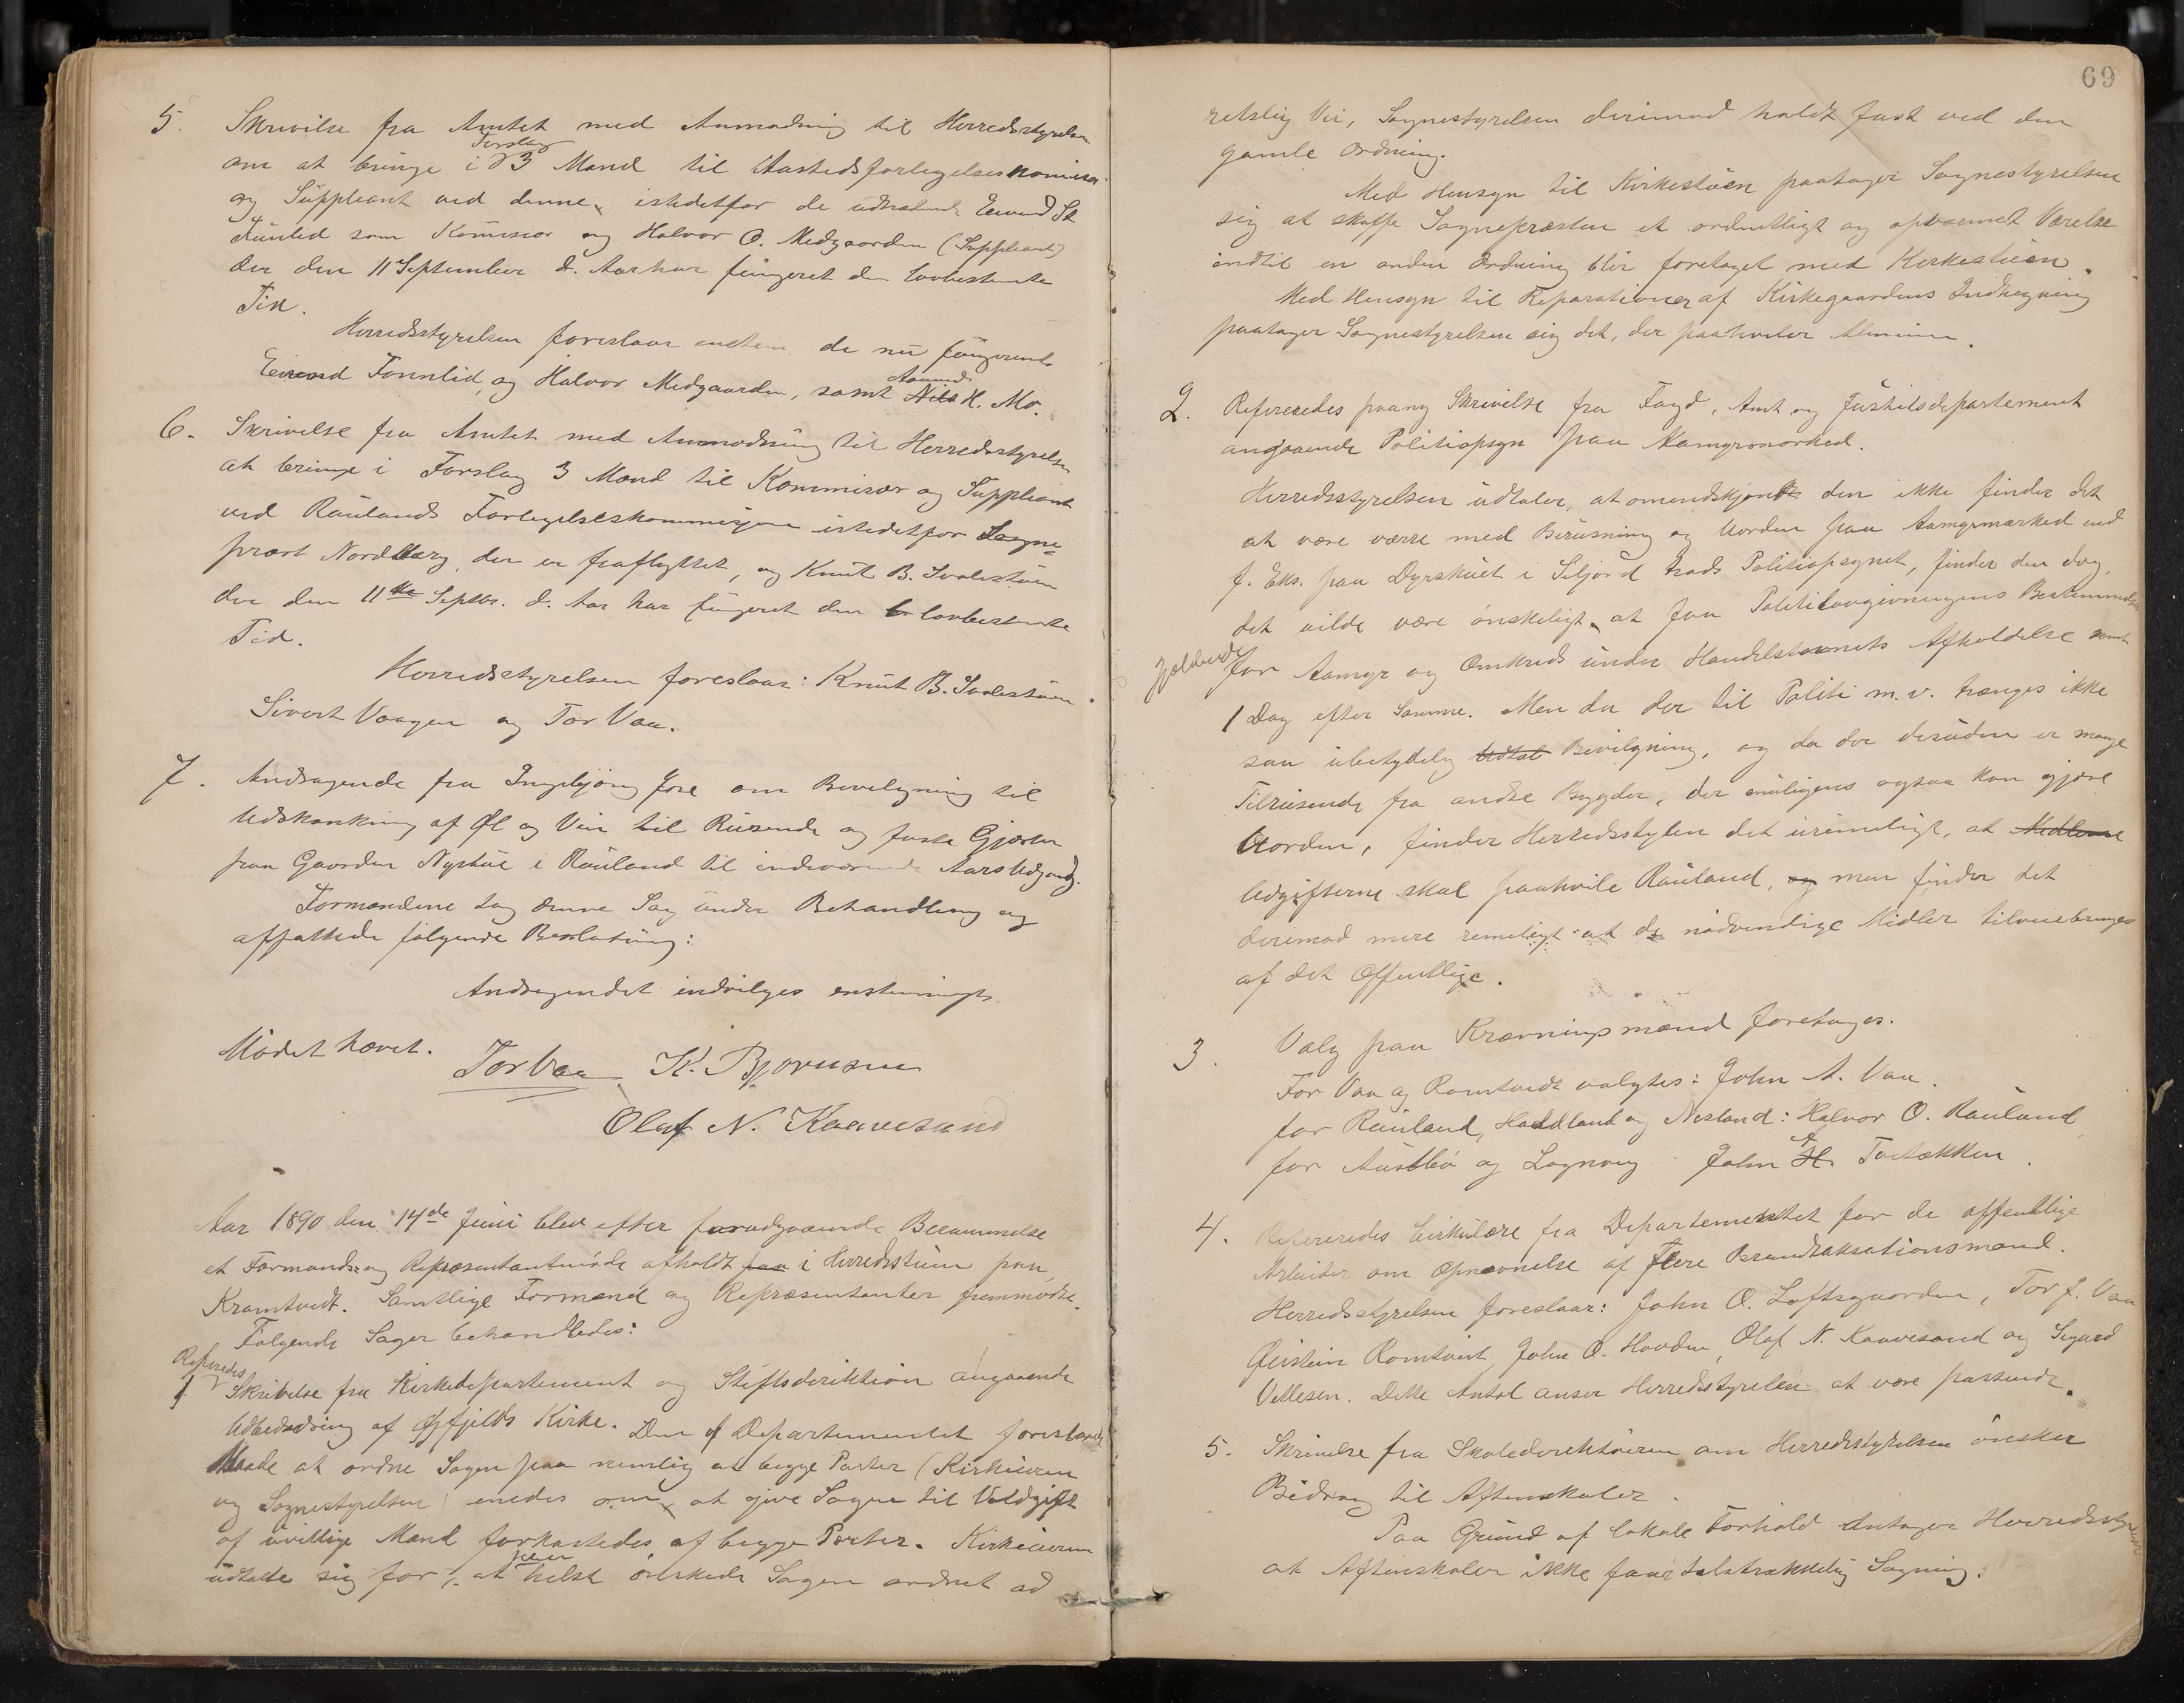 5. Skrivelse fra Amtet med Anmodning til Herredsstyrelsen
om at bringe i Forslag 3 Mænd til Aastedsforligelseskomisær
og Suppleant ved denne, istedetfor de udtrædende Eivind St.
Funlid som Komisær og Halvor O. Medgaarden (Suppleant)
der den 11 September d. Aar har fungeret den lovbestemte
Tid.
Herredsstyrelsen foreslaar enstem. de nu fungerende
Eivind Fonnlid, og Halvor Medgaarden, samt Aamund H. Mo.
6. Skrivelse fra Amtet med Anmodning til Herredsstyrelsen
at bringe i Forslag 3 Mænd til Kommisær og Suppleant
ved Raulands Forligelseskommisjon istedetfor Sogne-
præst Nordberg, der er fraflyttet, og Knut B.
der den 11te Septbr. d. Aar har fungeret den lovbestemte
Tid.
Herredsstyrelsen foreslaar: Knut B.
Sivert Vaagen og Tor Vaa.
7. Andragende fra Ingebjørg Jore om Bevilgning til
Udskjænkning af Øl og Vin til Reisende og faste Gjæster
paa Gaarden Nystue i Rauland til indeværende Aars Udgang.
Formændene tog denne Sag under Behandling og
affattede følgende Beslutning:
Andragendet indvilges enstemmigt.
Mødet hævet.
Tor Vaa K. Bjørnsen
Olaf N. Kaavesand
Aar 1890 den 14de Juni blev efter forudgaaende Berammelse
et Formands- og Repræsentantmøde afholdt paa i Herredsstuen paa
Kramtvedt. Samtlige Formænd og Repræsentanter fremmødte.
Følgende Sager behandledes:
1 Referedes Skrivelse fra Kirkedepartement og Stiftsdirektion angaaende
Udbedring af Øifjelds Kirke. Den af Departementet foreslaaede
Maade at ordne Sagen paa nemlig at begge Parter (Kirkeieren
og Sognestyrelsen) enedes om, at give Sagen til Voldgift
af uvillige Mænd forkastedes af begge Parter. Kirkeieren
udtalte sig for, at han helst ønskede Sagen ordnet ad
69
retslig Vei, Sognestyrelsen derimod holdt fast ved den
gamle Ordning.
Med Hensyn til Kirkestuen paatager Sognestyrelsen
sig at skaffe Sognepræsten et ordentligt og opvarmet Værelse
indtil en anden Ordning blir foretaget med Kirkestuen.
Med Hensyn til Reparationer af Kirkegaardens Indhegning
paatager Sognestyrelsen sig det, der paahviler Almuen.
2. Refereredes paany Skrivelse fra Fogd, Amt og Justitsdepartement
angaaende Politiopsyn paa Aamyrmarked.
Herredsstyrelsen udtaler, at omendskjøndt den ikke finder det
at være værre med Berusning og Uorden paa Aamyrmarked end
f. Eks. paa Dyrskuet i Seljord trods Politiopsynet, finder den dog,
det vilde være ønskeligt, at faa Politilovgivningens Bestemmelser
gjældende for Aamyr og Omkreds under Handelsstævnets Afholdelse samt
1 Dag efter Samme. Men da der til Politi m. v. trænges ikke
saa ubetydelig Udtal Bevilgning, og da der desuden er mange
Tilreisende fra andre Bygder, der muligens ogsaa kan gjøre
Uorden, finder Herredsstylen det urimeligt, at Midlerne
Udgifterne skal paahvile Rauland, og men finder det
derimod mere rimeligt at de nødvendige Midler tilveiebringes
af det Offentlige.
3. Valg paa Krævningsmænd foretages.
For Vaa og Romtvedt valgtes: John A. Vaa.
for Rauland, Haddland og Nesland: Halvor O. Rauland
for Austbø og Lognvig John A. Tvetækken.
4. Refereredes Cirkulære fra Departementet for de offentlige
Arbeider om Opnævnelse af flere Brandtaksationsmænd.
Herredsstyrelsen foreslaar: John O. Loftsgaarden, Tor J. Vaa
Øistein Romtveit, John O. Hovden, Olaf N. Kaavesand og Sigurd
Vellesen. Dette Antal anser Herredsstyrelen at være passende.
5. Skrivelse fra Skoledirektøren om Herredsstyrelsen ønsker
Bidrag til Aftenskoler.
Paa Grund af lokale Forhold antager Herredsstyrelsen
at Aftenskoler ikke faar tilstrækkelig Søgning.